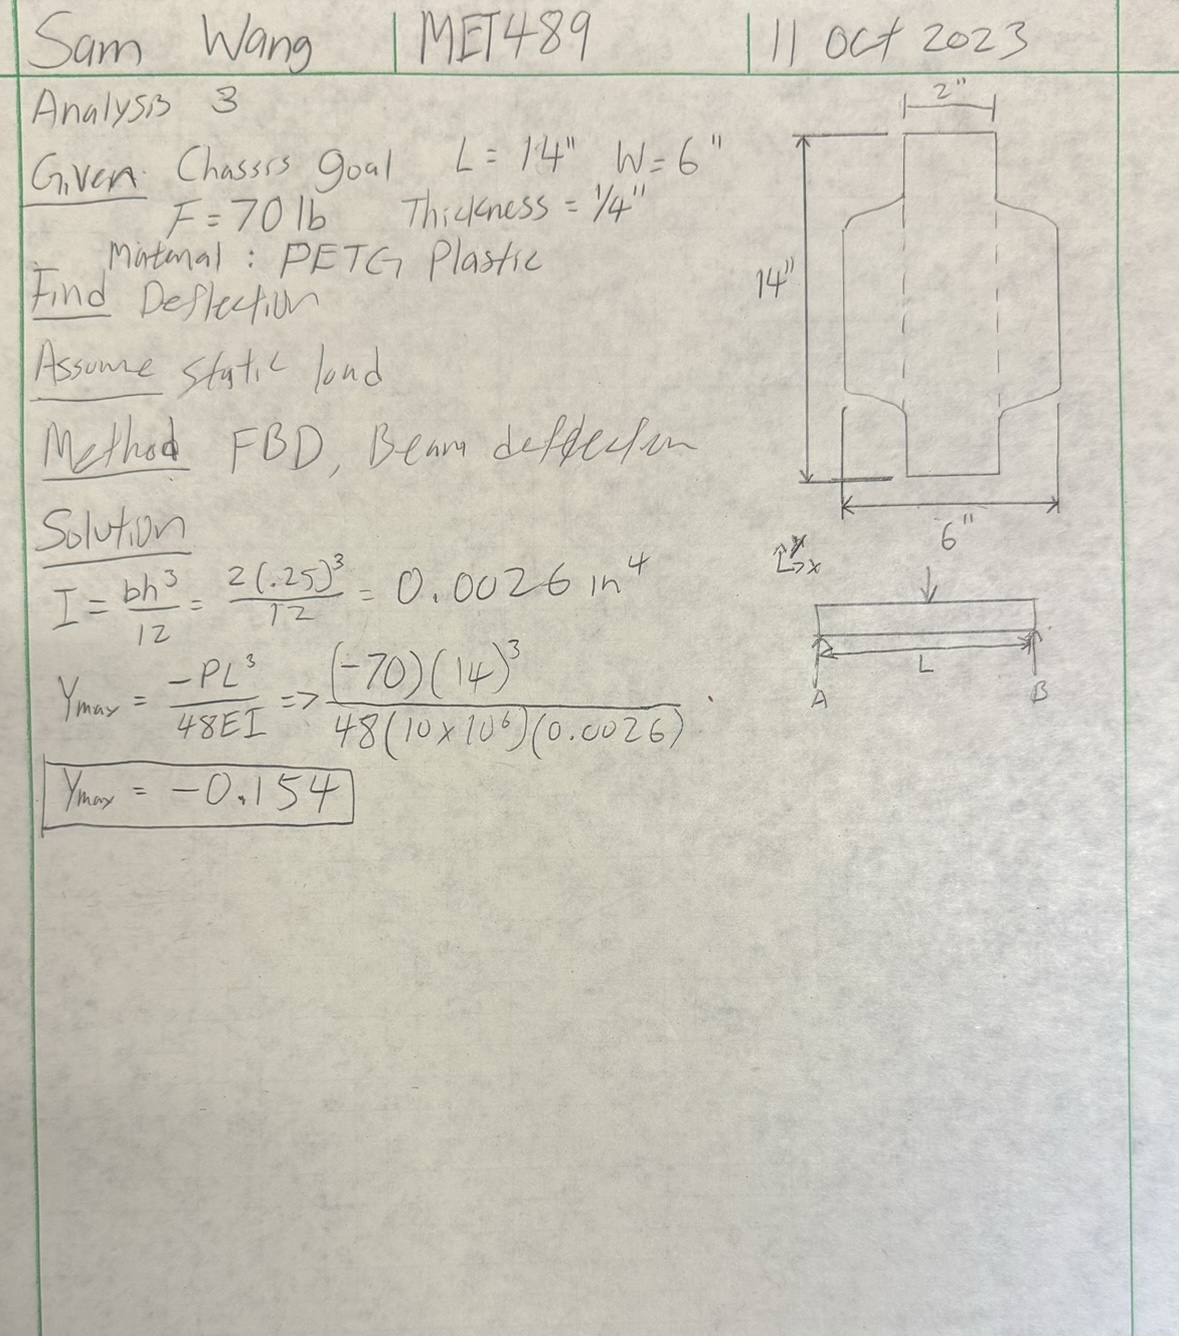 Sam Wang MET489 11 Oct 2023
Analysis 3
Given: Chassis goal L = 14" W = 6"
F = 70 lb Thickness = 1/4"
Material : PETG Plastic
Find Deflection
Assume static load
Method FBD, Beam deflection
Solution
I = bh³/12 = 2(.25)³/12 = 0.0026 in⁴
Ymax = -PL³/48EI => (-70)(14)³/48(10x10⁶)(0.0026)
Ymax = -0.154
2"
14"
6"
y
x
L
A B